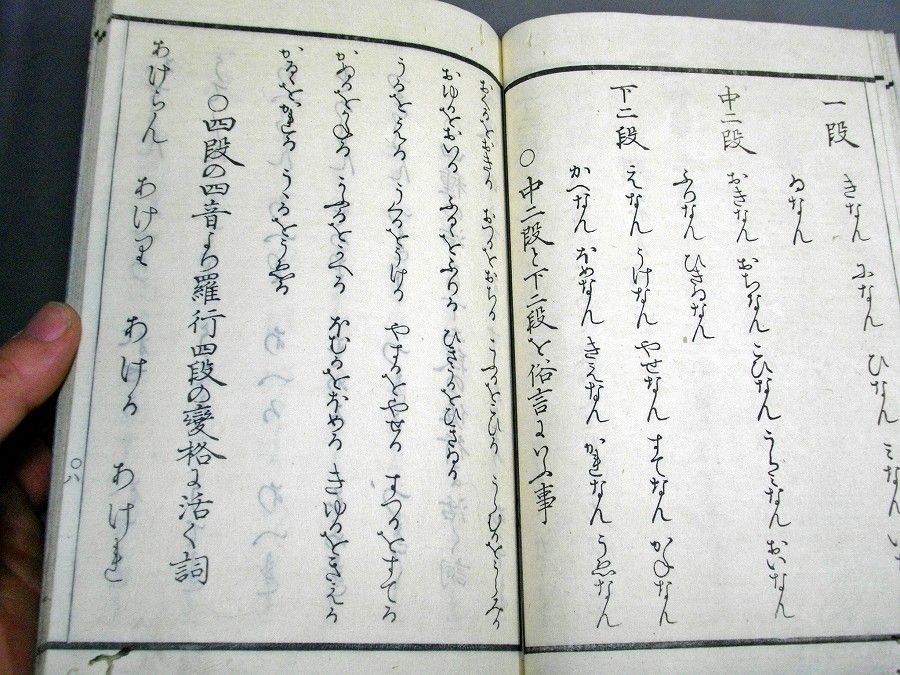 一段 きなん になん ひなん ミなん
ゐなん
中二段 おきなん おちなん こひなん うらミなん おいなん
ふりなん ひきゐなん
下二段 えなん うけなん やせなん すてなん かねなん
かへなん ほめなん きえなん かれなん うゑなん
○中二段と下二段を俗言にいふ事
おくるをおきる おつるをおちる こふるをこひる うらむるをうらみる
おゆるをおいる ふるゝをふりる ひきうるをひきゐる
うるをえる うくるをうける やするをやせる すつるをすてる
かぬるをかねる かふるをかへる ほむるをほめる きゆるをきえる
かるゝをかれる うゝるをうゑる
○四段の四音より羅行四段の變格に活く詞
あけらん あけり あける あけれ
○八